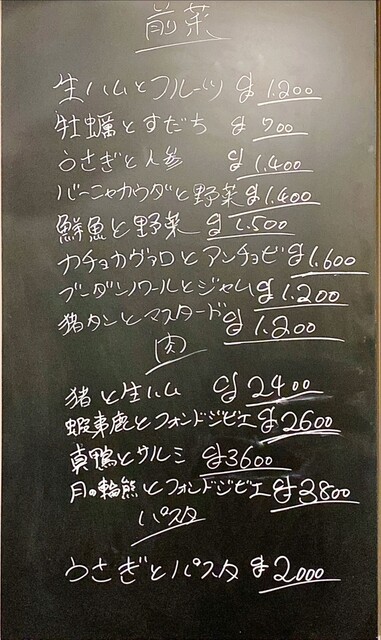 前菜
生ハムとフルーツ ¥1.200
牡蠣とすだち ¥700
うさぎと人参 ¥1.400
バーニャカウダと野菜 ¥1.400
鮮魚と野菜 ¥1.500
カチョカヴァロとアンチョビ ¥1.600
ブーダンノワールとジャム ¥1.200
猪タンとマスタード ¥1.200
肉
猪と生ハム ¥2400
蝦夷鹿とフォンドジビエ ¥2600
真鴨とサルミ ¥3600
月の輪熊とフォンドジビエ ¥3800
パスタ
うさぎとパスタ ¥2000